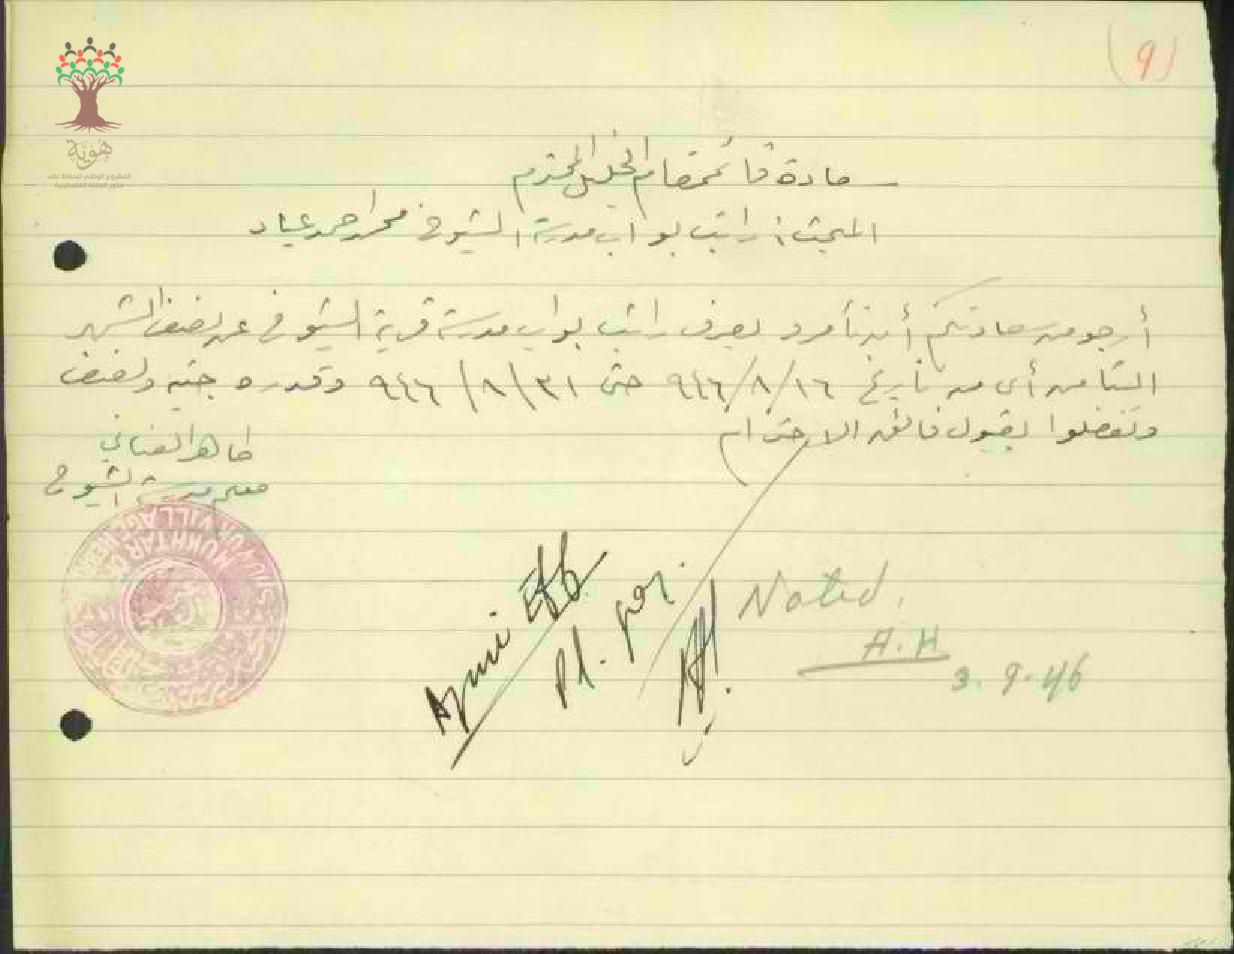 (9)
هوية
المشروع الوطني للحفاظ على
جذور العائلة الفلسطينية
سعادة قائمقام الخليل المحترم
المبحث: راتب بواب مدرسة الشيوخ محمد احمد عياد
أرجو من سعادتكم أن تأمروا بصرف راتب بواب مدرسة قرية الشيوخ عن نصف الشهر
الثامن أي من تاريخ ١٦/٨/٩٤٦ حتى ٣١/٨/٩٤٦ وقدره جنيه ونصف
وتفضلوا بقبول فائق الاحترام
طاهر
معلم مدرسة الشيوخ
MUKHTAR OF
VILLAGE
Azmi Eff
Pl.
Noted.
H.H
3.9.46